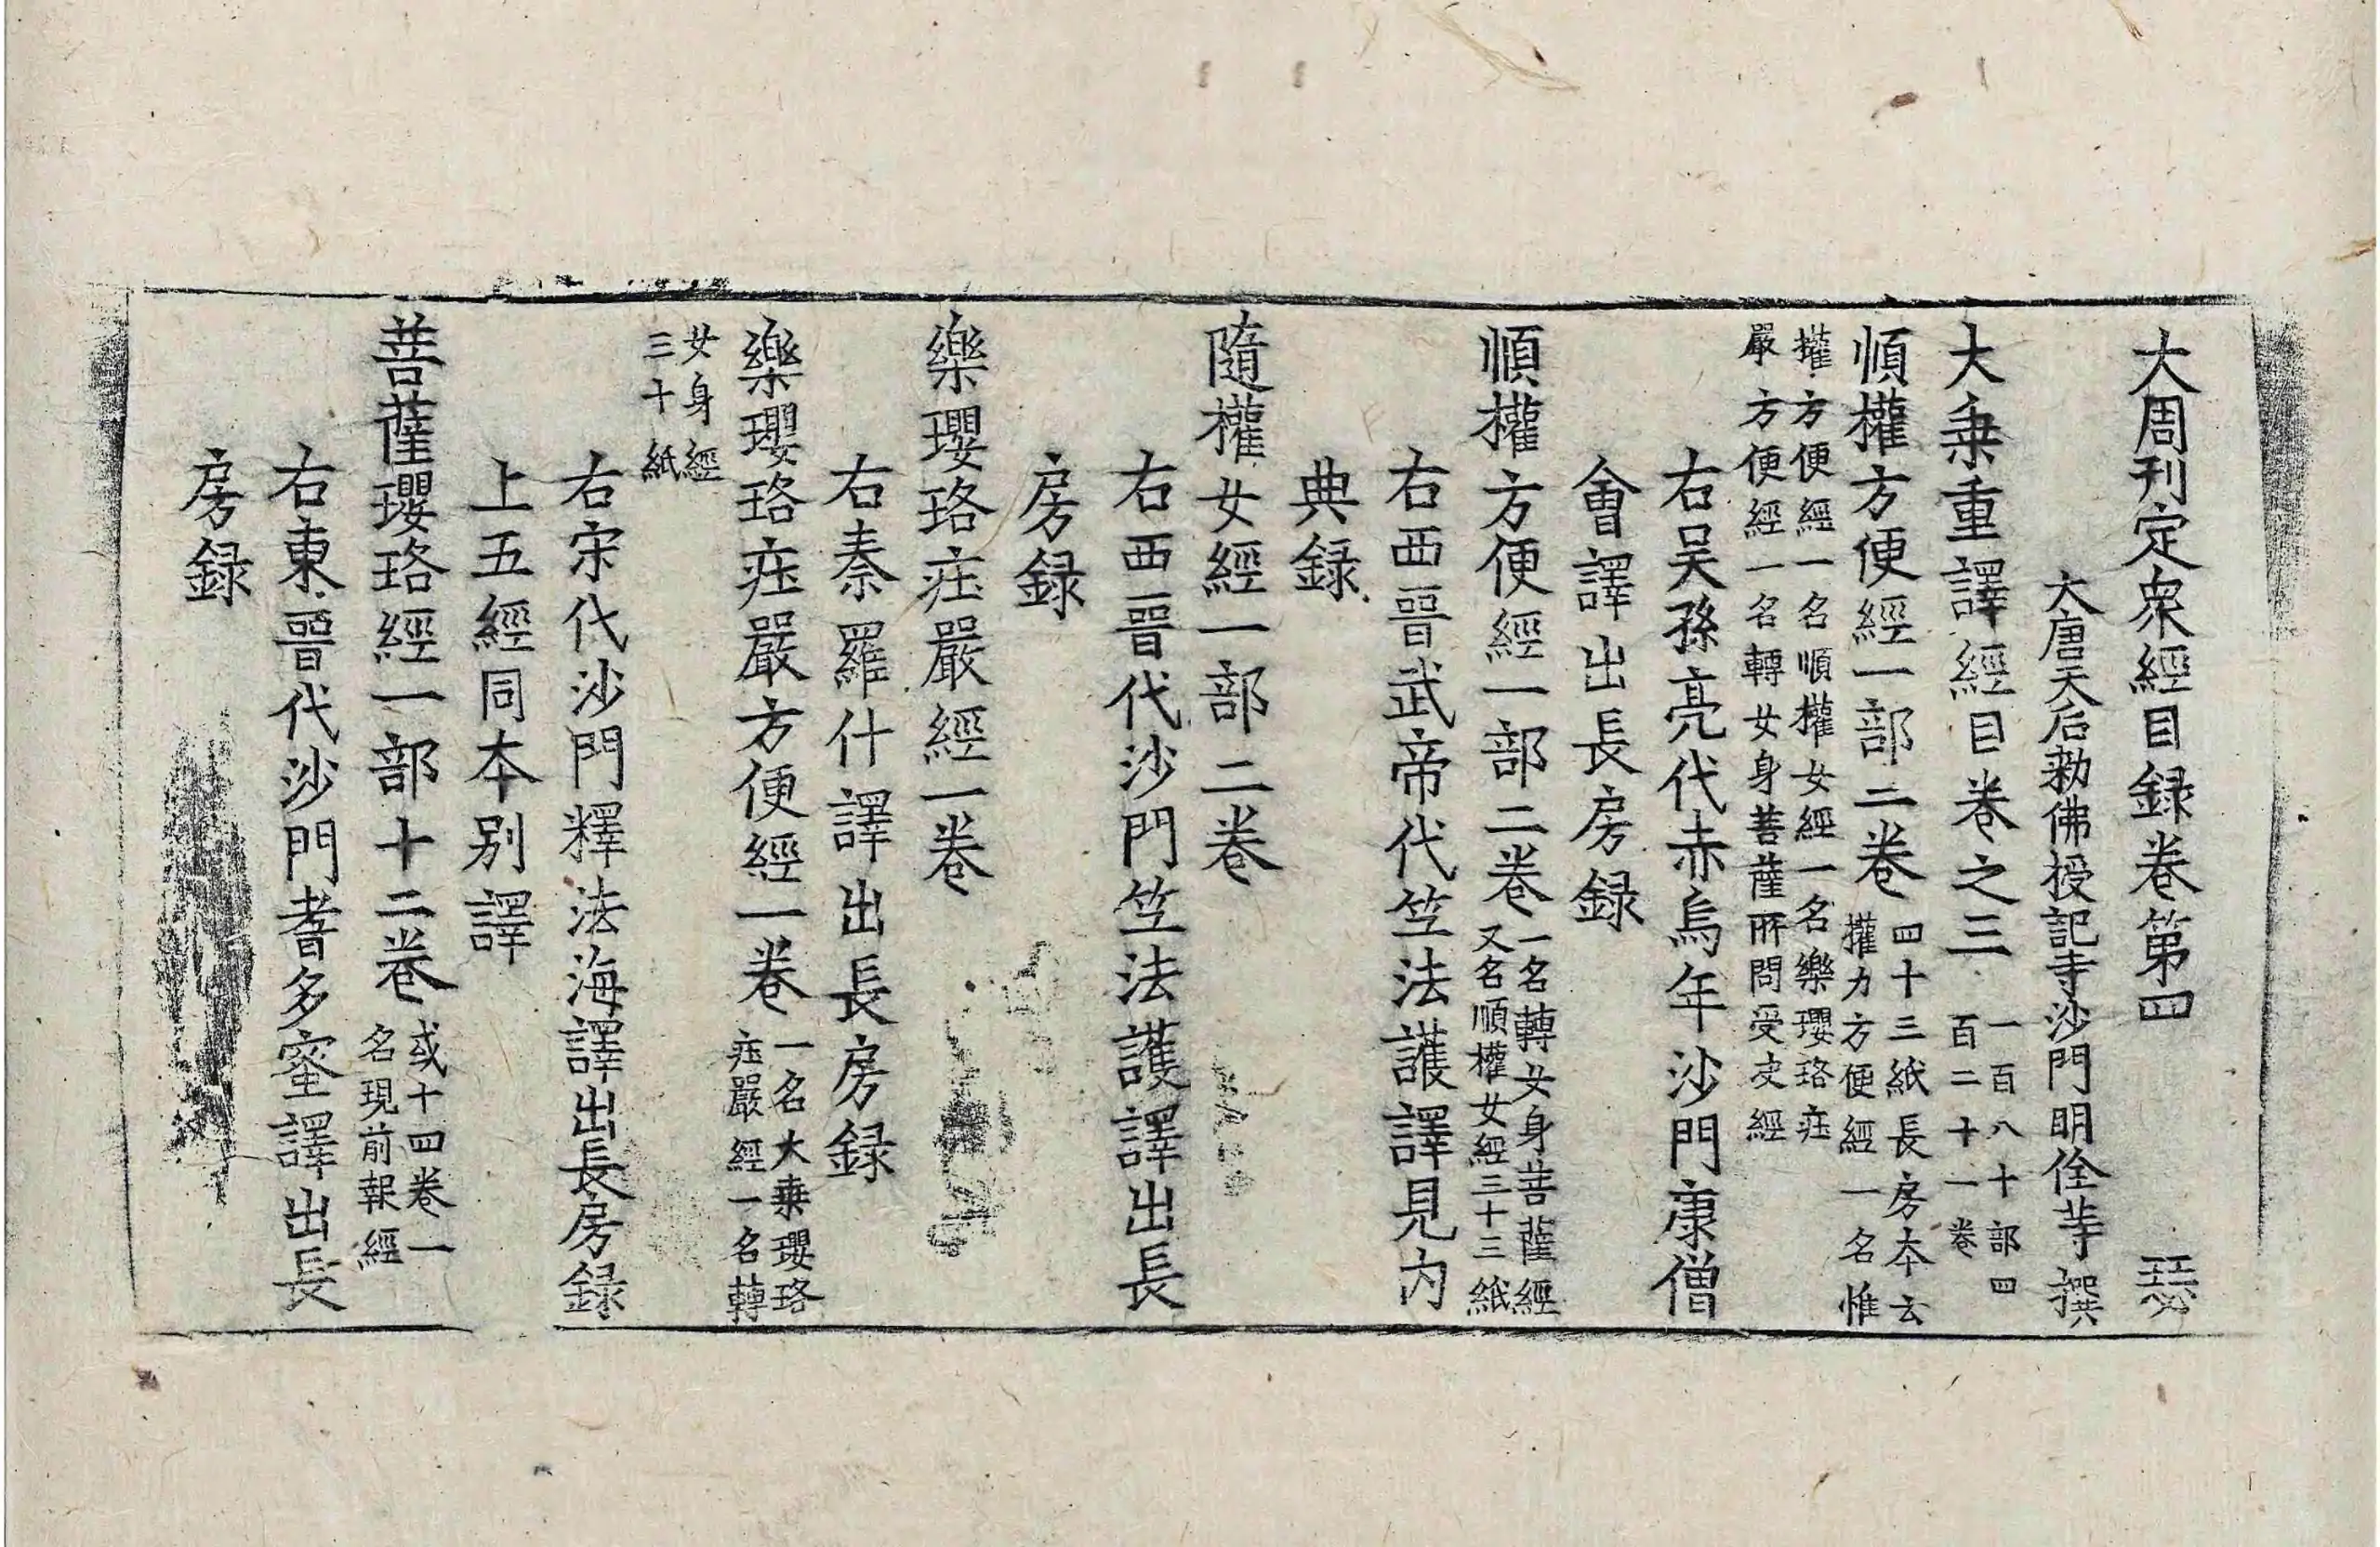 大周刊定衆經目録卷第四 瑟
大唐天后勑佛授記寺沙門明佺䓁撰
大乗重譯經目卷之三 一百八十部四
百二十一卷
順權方便經一部二卷 四十三紙長房本云
權力方便經一名惟
權方便經一名順權女經一名樂瓔珞𤕤
嚴方便經一名轉女身菩薩所問受决經
右吴孫亮代赤烏年沙門康僧
會譯出長房録
順權方便經一部二卷 一名轉女身菩薩經
又名順權女經三十三紙
右西晉武帝代竺法護譯見内
典録
隨權女經一部二卷
右西晉代沙門竺法護譯出長
房録
樂瓔珞𤕤嚴經一卷
右秦羅什譯出長房録
樂瓔珞𤕤嚴方便經一卷 一名大乗瓔珞
𤕤嚴經一名轉
女身經
三十紙
右宋代沙門釋法海譯出長房録
上五經同本別譯
菩薩瓔珞經一部十二卷 或十四卷一
名現前報經
右東晉代沙門耆多蜜譯出長
房録